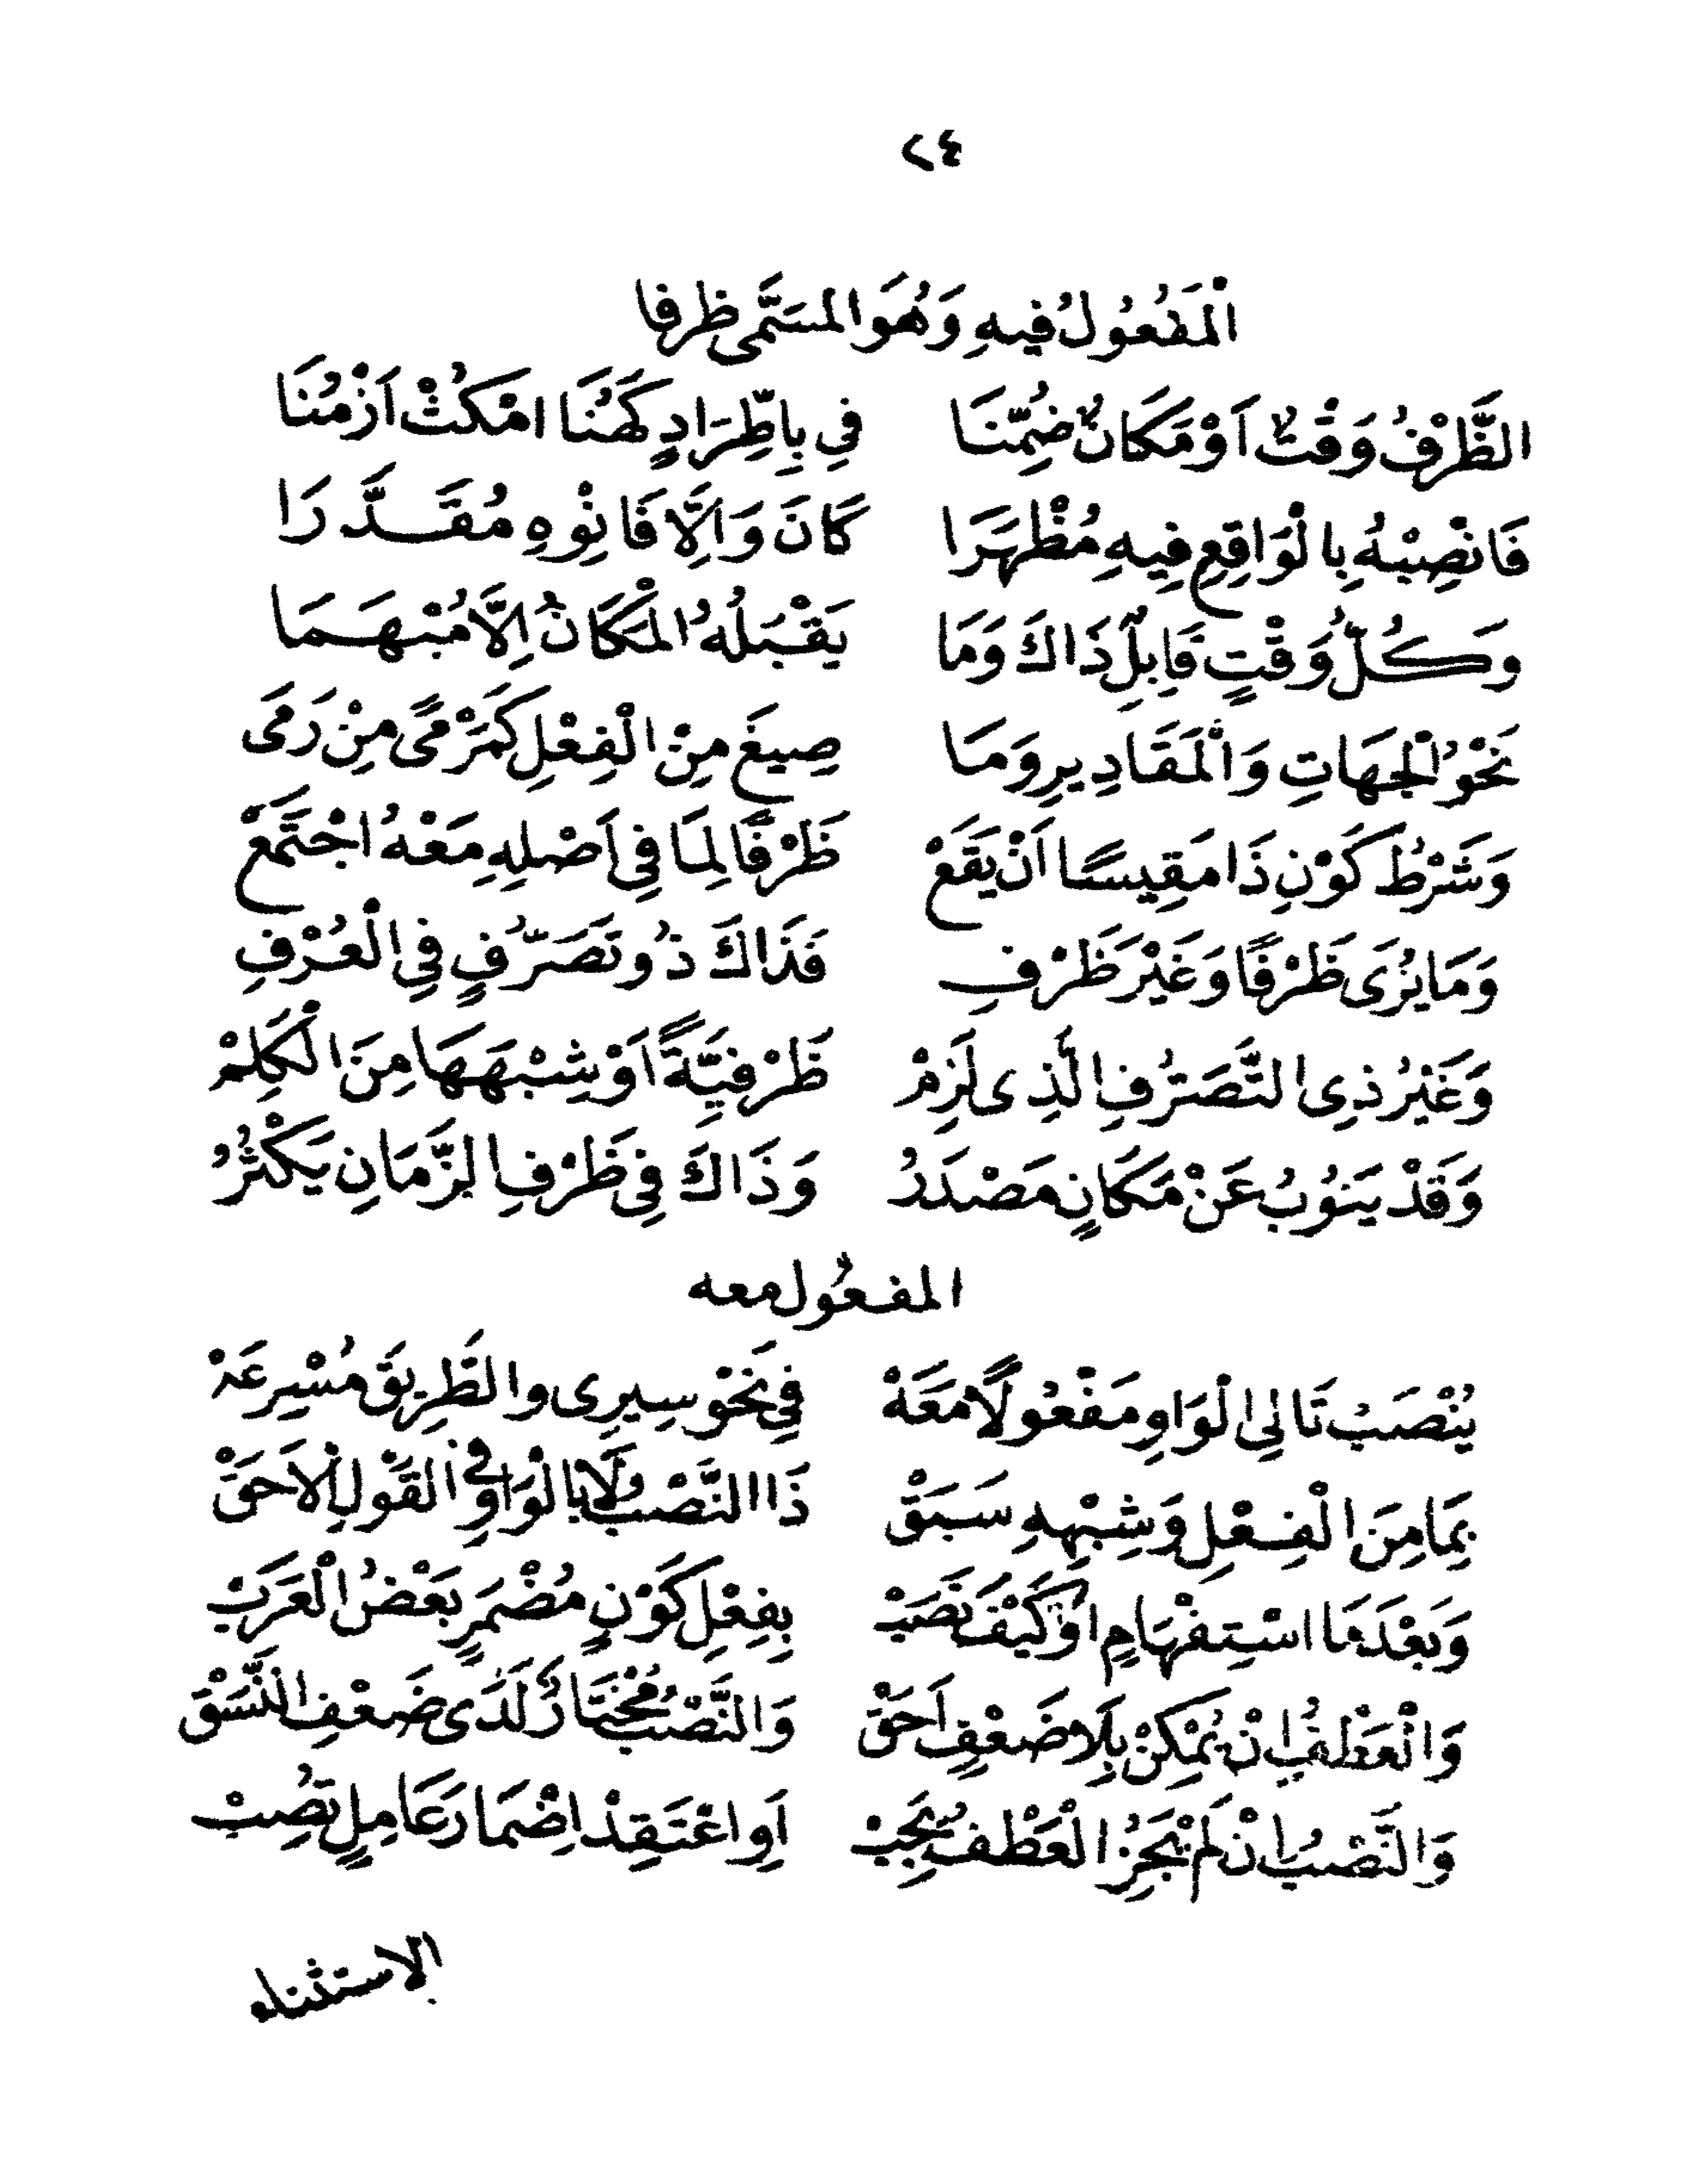 ٢٤
اَلْمَفْعُولُ فِيهِ وَهُوَ المسَمَّى ظرفا
الظَّرْفُ وَقْتٌ اَوْ مَكَانٌ ضُمِّنَا فِي بِاطِّرَادٍ كَهُنَا امْكُثْ اَزْمُنَا
فَانْصِبْهُ بِالْوَاقِعِ فِيهِ مُظْهَرَا كَانَ وَاِلَّا فَانْوِهِ مُقَدَّرَا
وَكُلُّ وَقْتٍ قَابِلٌ ذَاكَ وَمَا يَقْبَلُهُ الْمَكَانُ اِلَّا مُبْهَمَا
نَحْوُ الْجِهَاتِ وَالْمَقَادِيرِ وَمَا صِيغَ مِنْ الْفِعْلِ كَمَرْمًى مِنْ رَمَى
وَشَرْطُ كَوْنِ ذَا مَقِيسًا اَنْ يَقَعْ ظَرْفًا لِمَا فِي اَصْلِهِ مَعْهُ اجْتَمَعْ
وَمَا يُرَى ظَرْفًا وَغَيْرَ ظَرْفِ فَذَاكَ ذُو تَصَرُّفٍ فِي الْعُرْفِ
وَغَيْرُ ذِى التَّصَرُّفِ الَّذِى لَزِمْ ظَرْفِيَّةً اَوْ شِبْهَهَا مِنَ الْكَلِمْ
وَقَدْ يَنُوبُ عَنْ مَكَانٍ مَصْدَرُ وَذَاكَ فِي ظَرْفِ الزَّمَانِ يَكْثُرُ
المفعُول معه
يُنْصَبُ تَالِي الْوَاوِ مَفْعُولًا مَعَهْ فِي نَحْوِ سِيرِى والطَّرِيقَ مُسْرِعَهْ
بِمَا مِنَ الْفِعْلِ وَشِبْهِهِ سَبَقْ ذَا النَّصْبُ لَا بِالْوَاوِ فِي الْقَوْلِ الْاَحَقْ
وَبَعْدَ مَا اسْتِفْهَامٍ اَوْ كَيْفَ نَصَبْ بِفِعْلِ كَوْنٍ مُضْمَرٍ بَعْضُ الْعَرَبْ
وَالْعَطْفُ اِنْ يُمْكِنْ بِلَا ضَعْفٍ اَحَقْ وَالنَّصْبُ مُخْتَارٌ لَدَى ضَعْفِ النَّسَقْ
وَالنَّصْبُ اِنْ لَمْ يَجُزِ الْعَطْفُ يَجِبْ اَوِ اعْتَقِدْ اِضْمَارَ عَامِلٍ تُصِبْ
الاستثناء